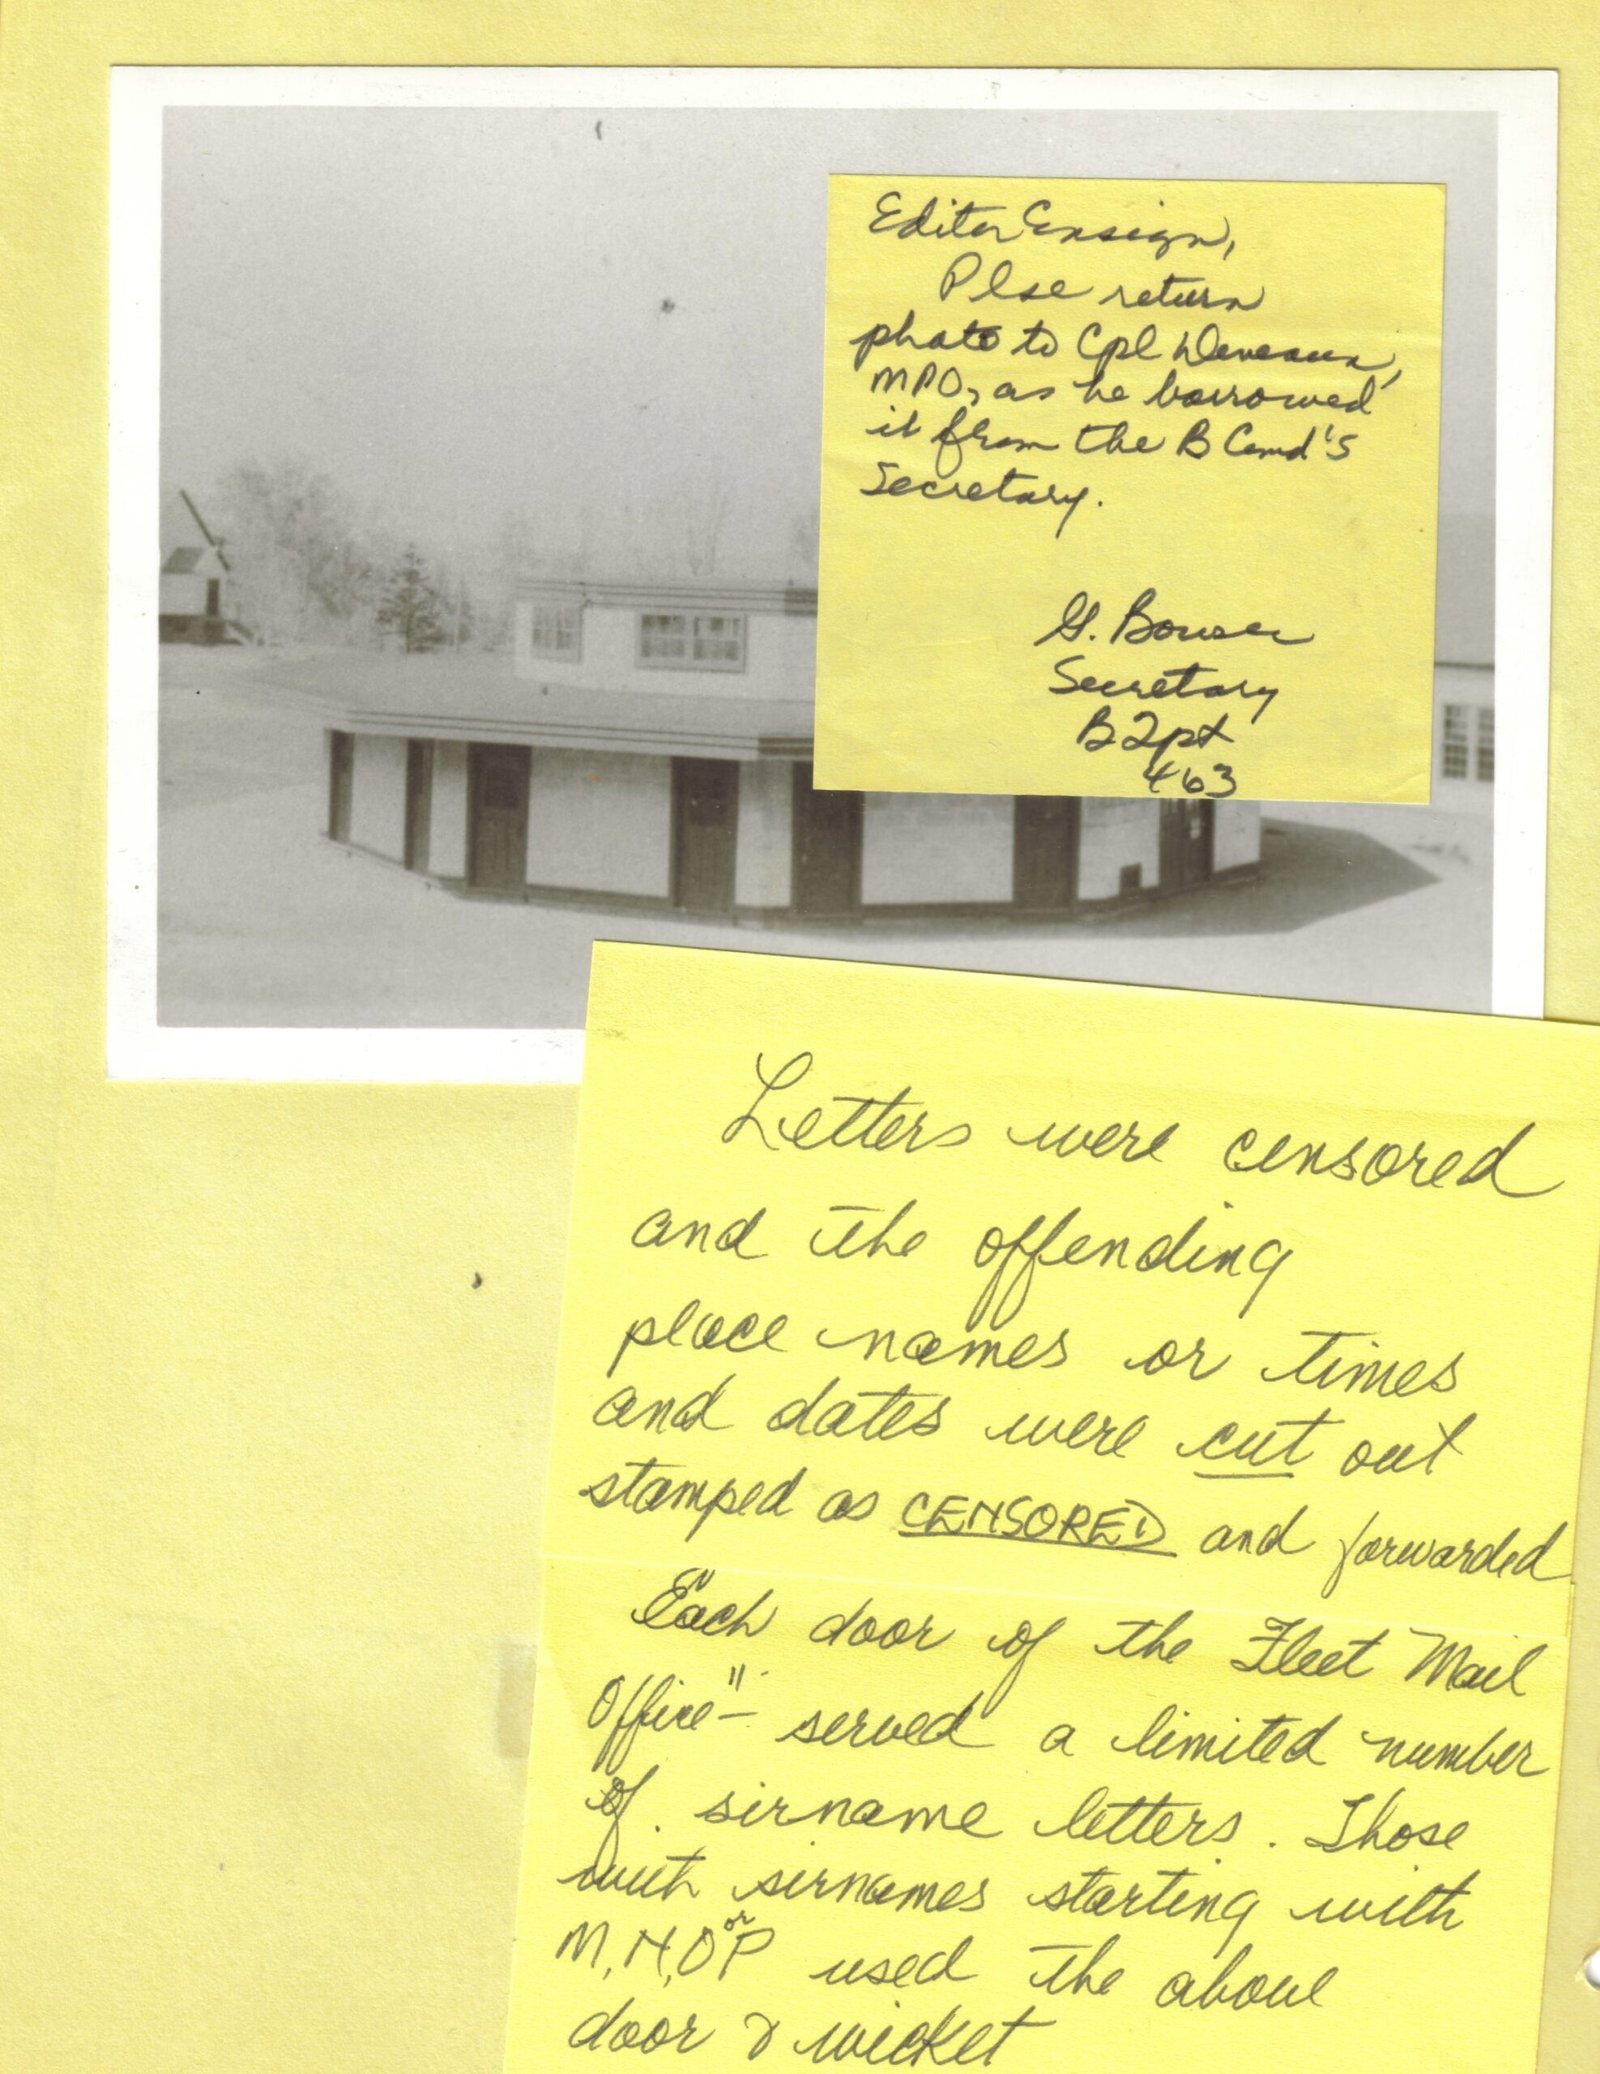 Editor Ensign,
Plse return
photo to Cpl Deveaux,
MPO, as he borrowed
it from the B Comd's
Secretary.
G. Bowser
Secretary
B2pt
463
Letters were censored
and the offending
place names or times
and dates were cut out
stamped as CENSORED and forwarded
"Each door of the Fleet Mail
Office" - served a limited number
of sirname letters. Those
with sirnames starting with
M, N, O or P used the above
door & wicket